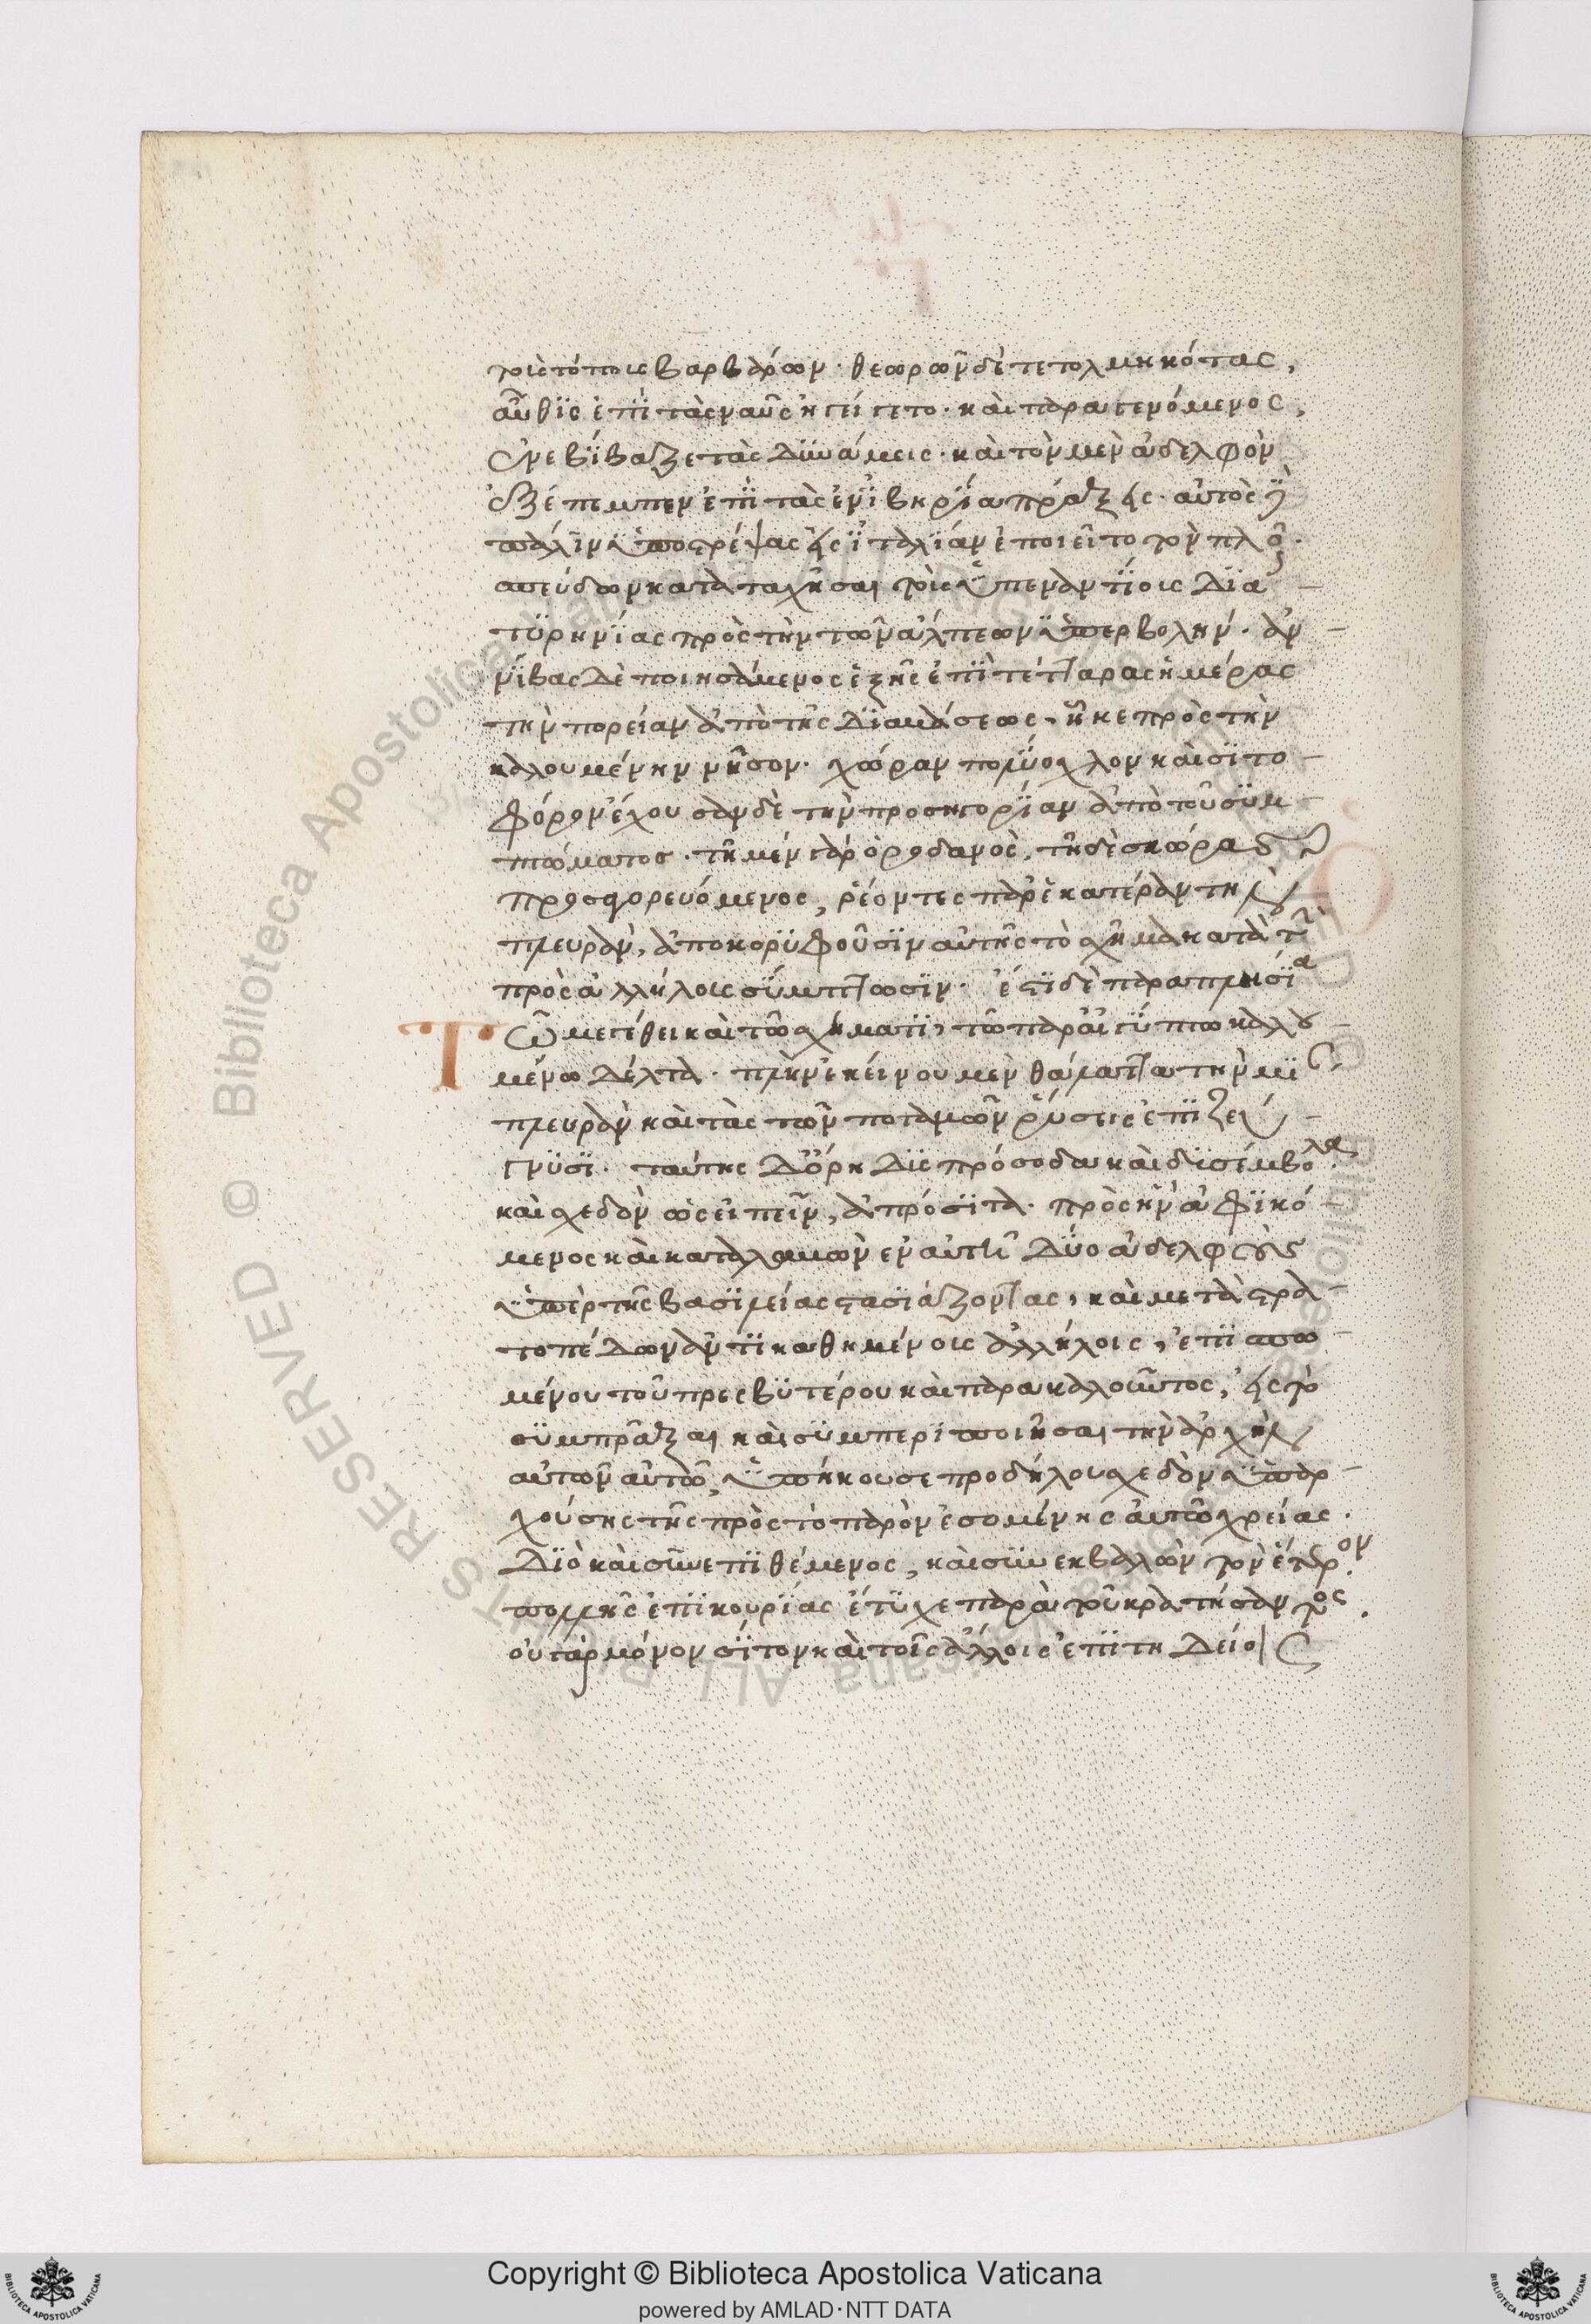 τοῖς τόποις βαρβάρων· θεωρῶν δὲ τετολμηκότας,
αὖθις ἐπὶ τὰς ναῦς ἠπείγετο· καὶ παραγενόμενος,
ἐνεβίβαζε τὰς δυνάμεις· καὶ τὸν μὲν ἀδελφὸν
ἐξέπεμπεν ἐπὶ τὰς ἐν ἰβηρίᾳ πράξεις· αὐτὸς δὲ
πάλιν ὑποστρέψας εἰς ἰταλίαν ἐποιεῖτο τὸν πλοῦν·
σπεύδων καταταχῆσαι τοῖς ὑπεναντίοις διὰ
τυρηνίας πρὸς τὴν τῶν ἄλπεων ὑπερβολήν· ἀν
νίβας δὲ ποιησάμενος ἑξῆς ἐπὶ τέτταρας ἡμέρας
τὴν πορείαν ἀπὸ τῆς διαβάσεως, ἧκε πρὸς τὴν
καλουμένην νῆσον· χώραν πολύοχλον καὶ σιτο
φόρον ἔχουσαν δὲ τὴν προσηγορίαν ἀπὸ τοῦ συμ
πτώματος· τῇ μὲν γὰρ ὁ ῥοδανὸς, τῇ δὲ σκώρας
προσαγορευόμενος, ῥέοντες παρ' ἑκατέραν τὴν
πλευρὰν, ἀποκορυφοῦσιν αὐτῆς τὸ σχῆμα κατὰ τὴν
πρὸς ἀλλήλοις σύμπτωσιν· ἔστι δὲ παραπλησία
Τῷ μεγέθει καὶ τῷ σχήματι, τῷ παρ' αἰγύπτῳ καλου
μένῳ δέλτα· πλὴν ἐκείνου μὲν θάλαττα τὴν μί
πλευρὰν καὶ τὰς τῶν ποταμῶν ῥύσεις ἐπιζευ
γνύσι· ταύτης δ' ὄρη δυσπρόσοδα καὶ δυσέμβολα
καὶ σχεδὸν ὡς εἰπεῖν, ἀπρόσιτα· πρὸς ἣν ἀφικό
μενος καὶ καταλαβὼν ἐν αὐτῇ δύο ἀδελφοὺς
ὑπὲρ τῆς βασιλείας στασιάζοντας, καὶ μετὰ στρα
τοπέδων ἀντικαθημένους ἀλλήλοις, ἐπισπω
μένου τοῦ πρεσβυτέρου καὶ παρακαλοῦντος, εἰς τὸ
συμπρᾶξαι καὶ συμπεριποιῆσαι τὴν ἀρχὴν
αὐτῶν αὐτῷ, ὑπήκουσε προδήλου σχεδὸν ὑπαρ
χούσης τῆς πρὸς τὸ παρὸν ἐσομένης αὐτῷ χρείας·
διὸ καὶ συνεπιθέμενος, καὶ συνεκβαλὼν τὸν ἕτερον·
πολλῆς ἐπικουρίας ἔτυχε παρὰ τοῦ κρατήσαντος·
οὐ γὰρ μόνον σίτον καὶ τοῖς ἄλλοις ἐπιτηδείοις